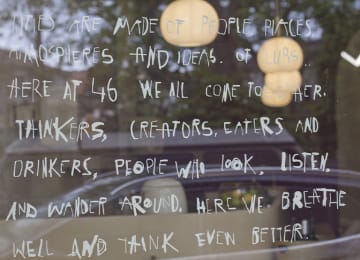 CITIES ARE MADE OF PEOPLE PLACES
ATMOSPHERES AND IDEAS. OF CLUBS..
HERE AT 46 WE ALL COME TO HER.
THINKERS, CREATORS, EATERS AND
DRINKERS, PEOPLE WHO LOOK, LISTEN,
AND WANDER AROUND. HERE WE BREATHE
WELL AND THINK EVEN BETTER.